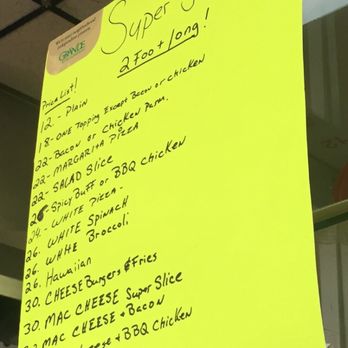 GRANDE
Super
2 Foot long!
Price List!
12 - Plain
18 - ONE Topping Except Bacon or chicken
22 - Bacon or Chicken Parm.
22 - MARGARITA PIZZA
22 - SALAD Slice
26 - Spicy Buff or BBQ chicken
24. - WHITE PIZZA -
26. WHITE Spinach
26. WHITE Broccoli
26. Hawaiian
30. CHEESE Burgers & Fries
30. MAC CHEESE Super Slice
MAC CHEESE & Bacon
cheese & BBQ Chicken